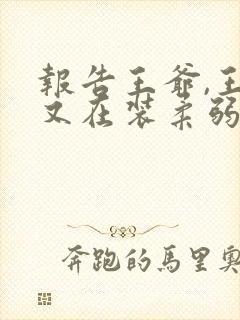 報告王爺,王
又在裝柔弱
奔跑的馬里奧